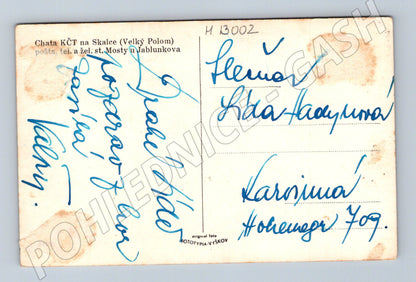 H B002
Chata KČT na Skalce (Velký Polom)
pošta, tel. a žel. st. Mosty u Jablunkova
Drahé Lídě
pozdrav z hor
Valny.
Slečna
Lída Hadynová
Karviná
Hohenegr 709.
original foto
FOTOTYPIA-VYŠKOV
POHLEDNICE - GASH